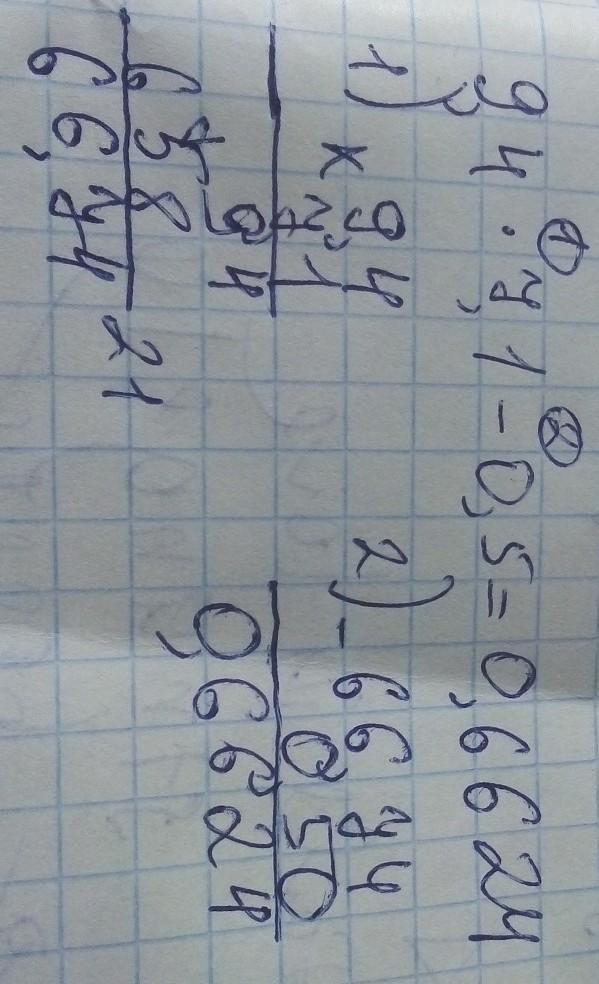 ① ②
9,4 · 7,1 - 0,5 = 0,6624
1) × 94
7,1
94
+ 658
66,74 21
2) - 66 74
0,50
0,6624